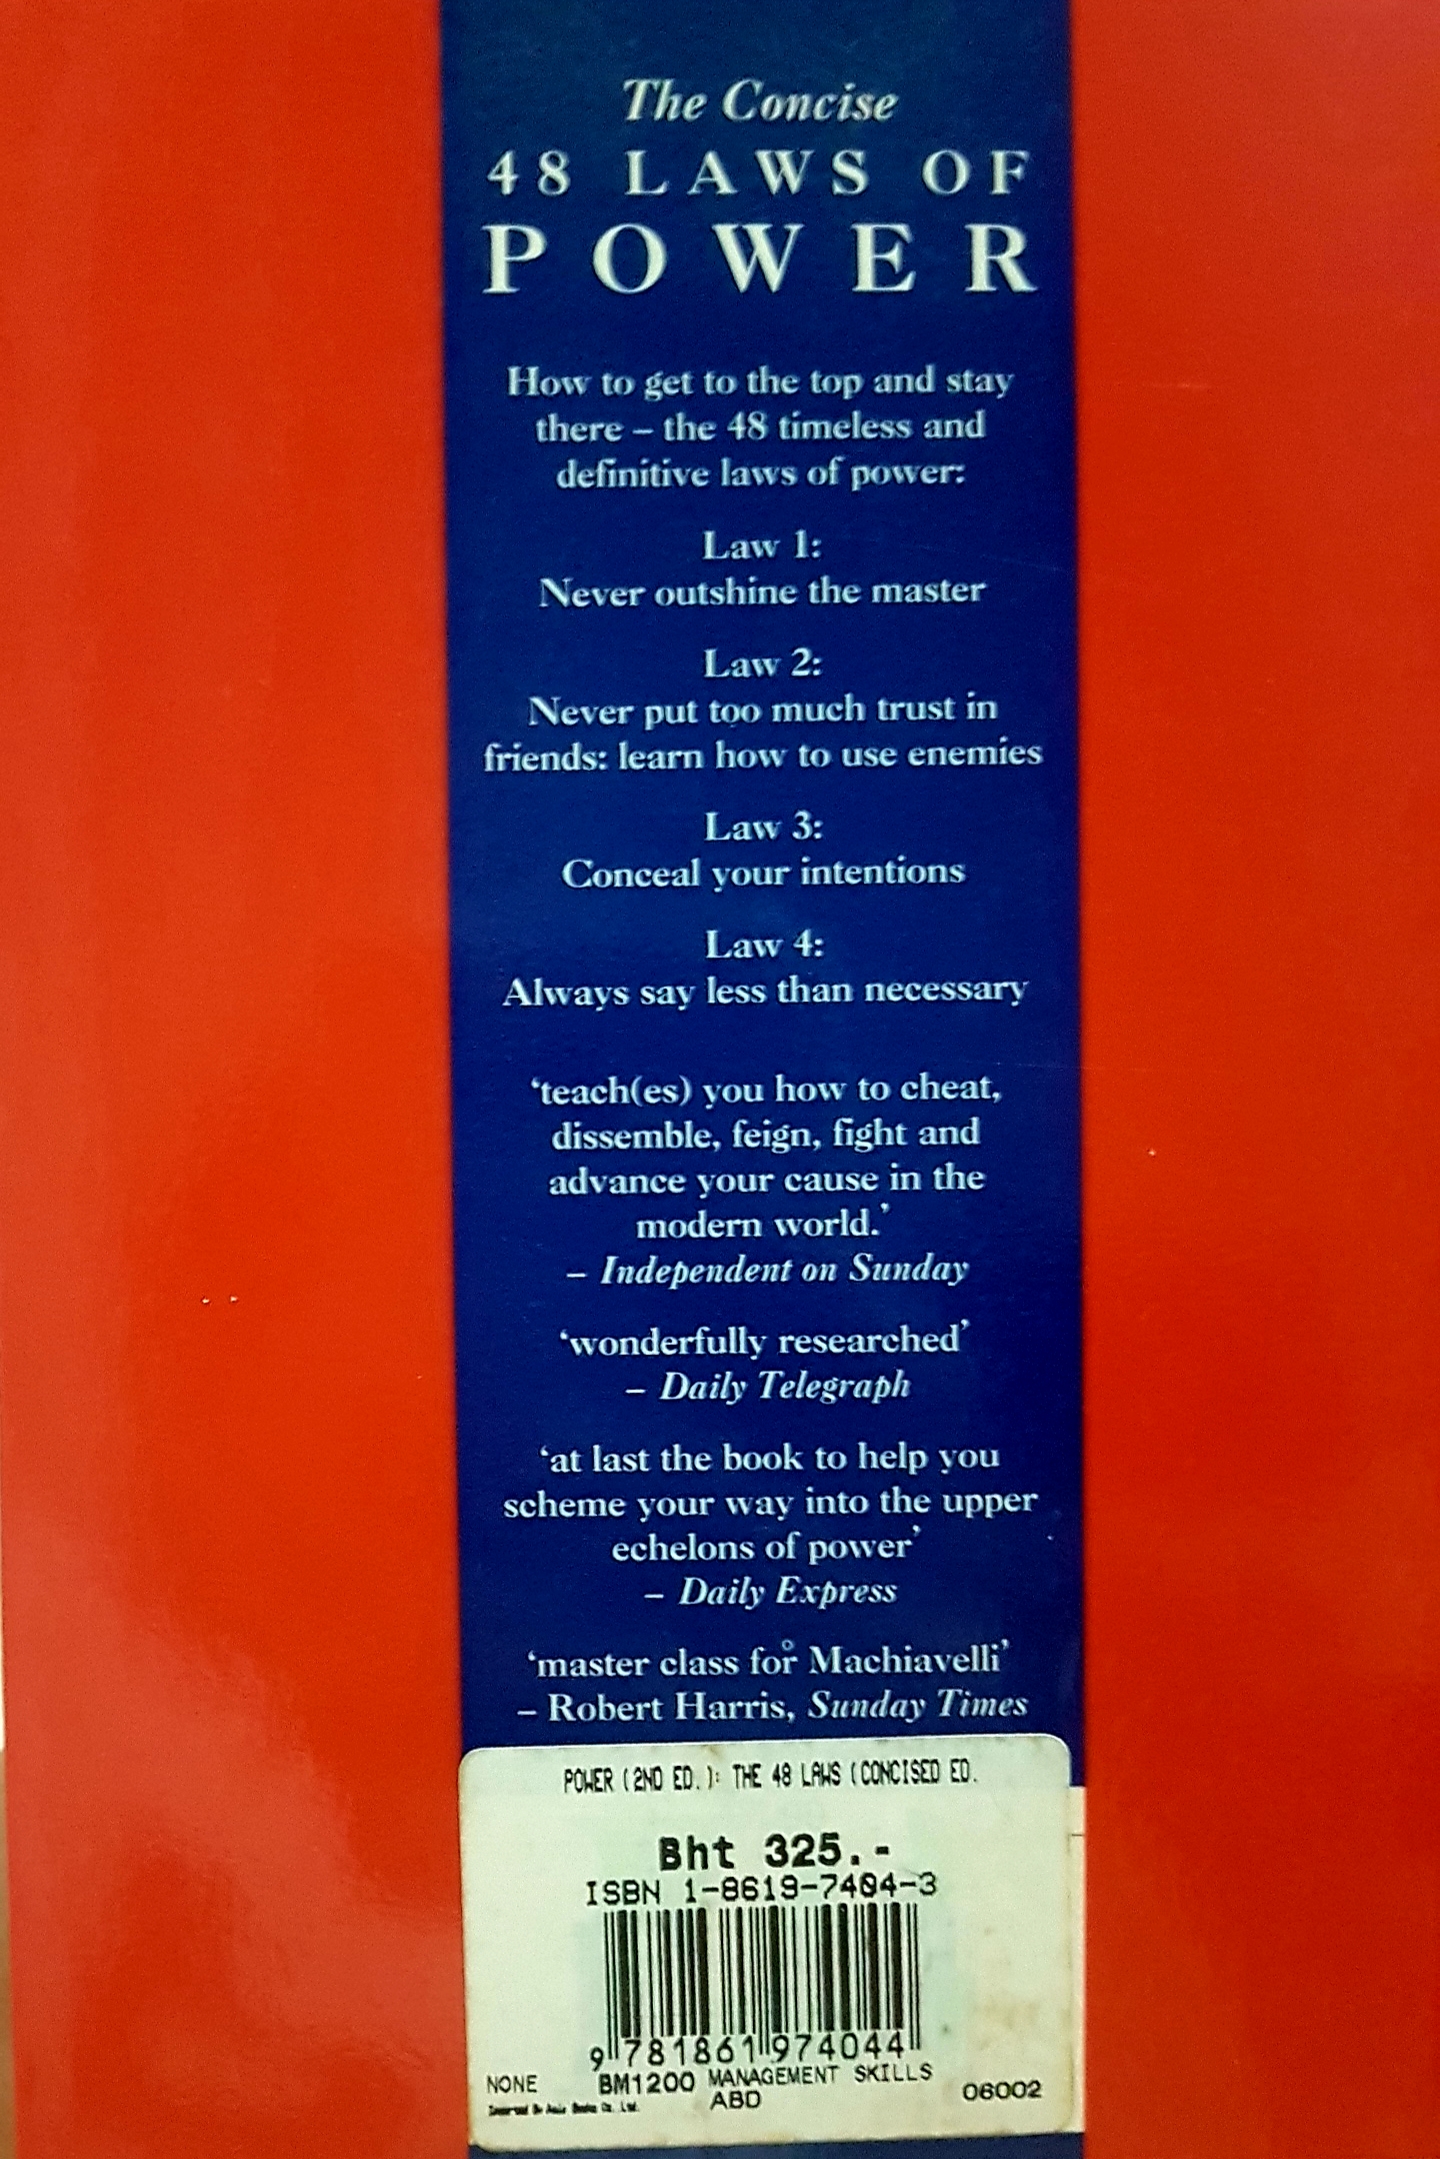 The Concise
48 LAWS OF
POWER
How to get to the top and stay
there – the 48 timeless and
definitive laws of power:
Law 1:
Never outshine the master
Law 2:
Never put too much trust in
friends: learn how to use enemies
Law 3:
Conceal your intentions
Law 4:
Always say less than necessary
‘teach(es) you how to cheat,
dissemble, feign, fight and
advance your cause in the
modern world.’
– Independent on Sunday
‘wonderfully researched’
– Daily Telegraph
‘at last the book to help you
scheme your way into the upper
echelons of power’
– Daily Express
‘master class for Machiavelli’
– Robert Harris, Sunday Times
POWER (2ND ED.): THE 48 LAWS (CONCISED ED.
Bht 325.-
ISBN 1-8619-7404-3
9 781861 974044
NONE BM1200 MANAGEMENT SKILLS
ABD 06002
Imported By Asia Books Co. Ltd.